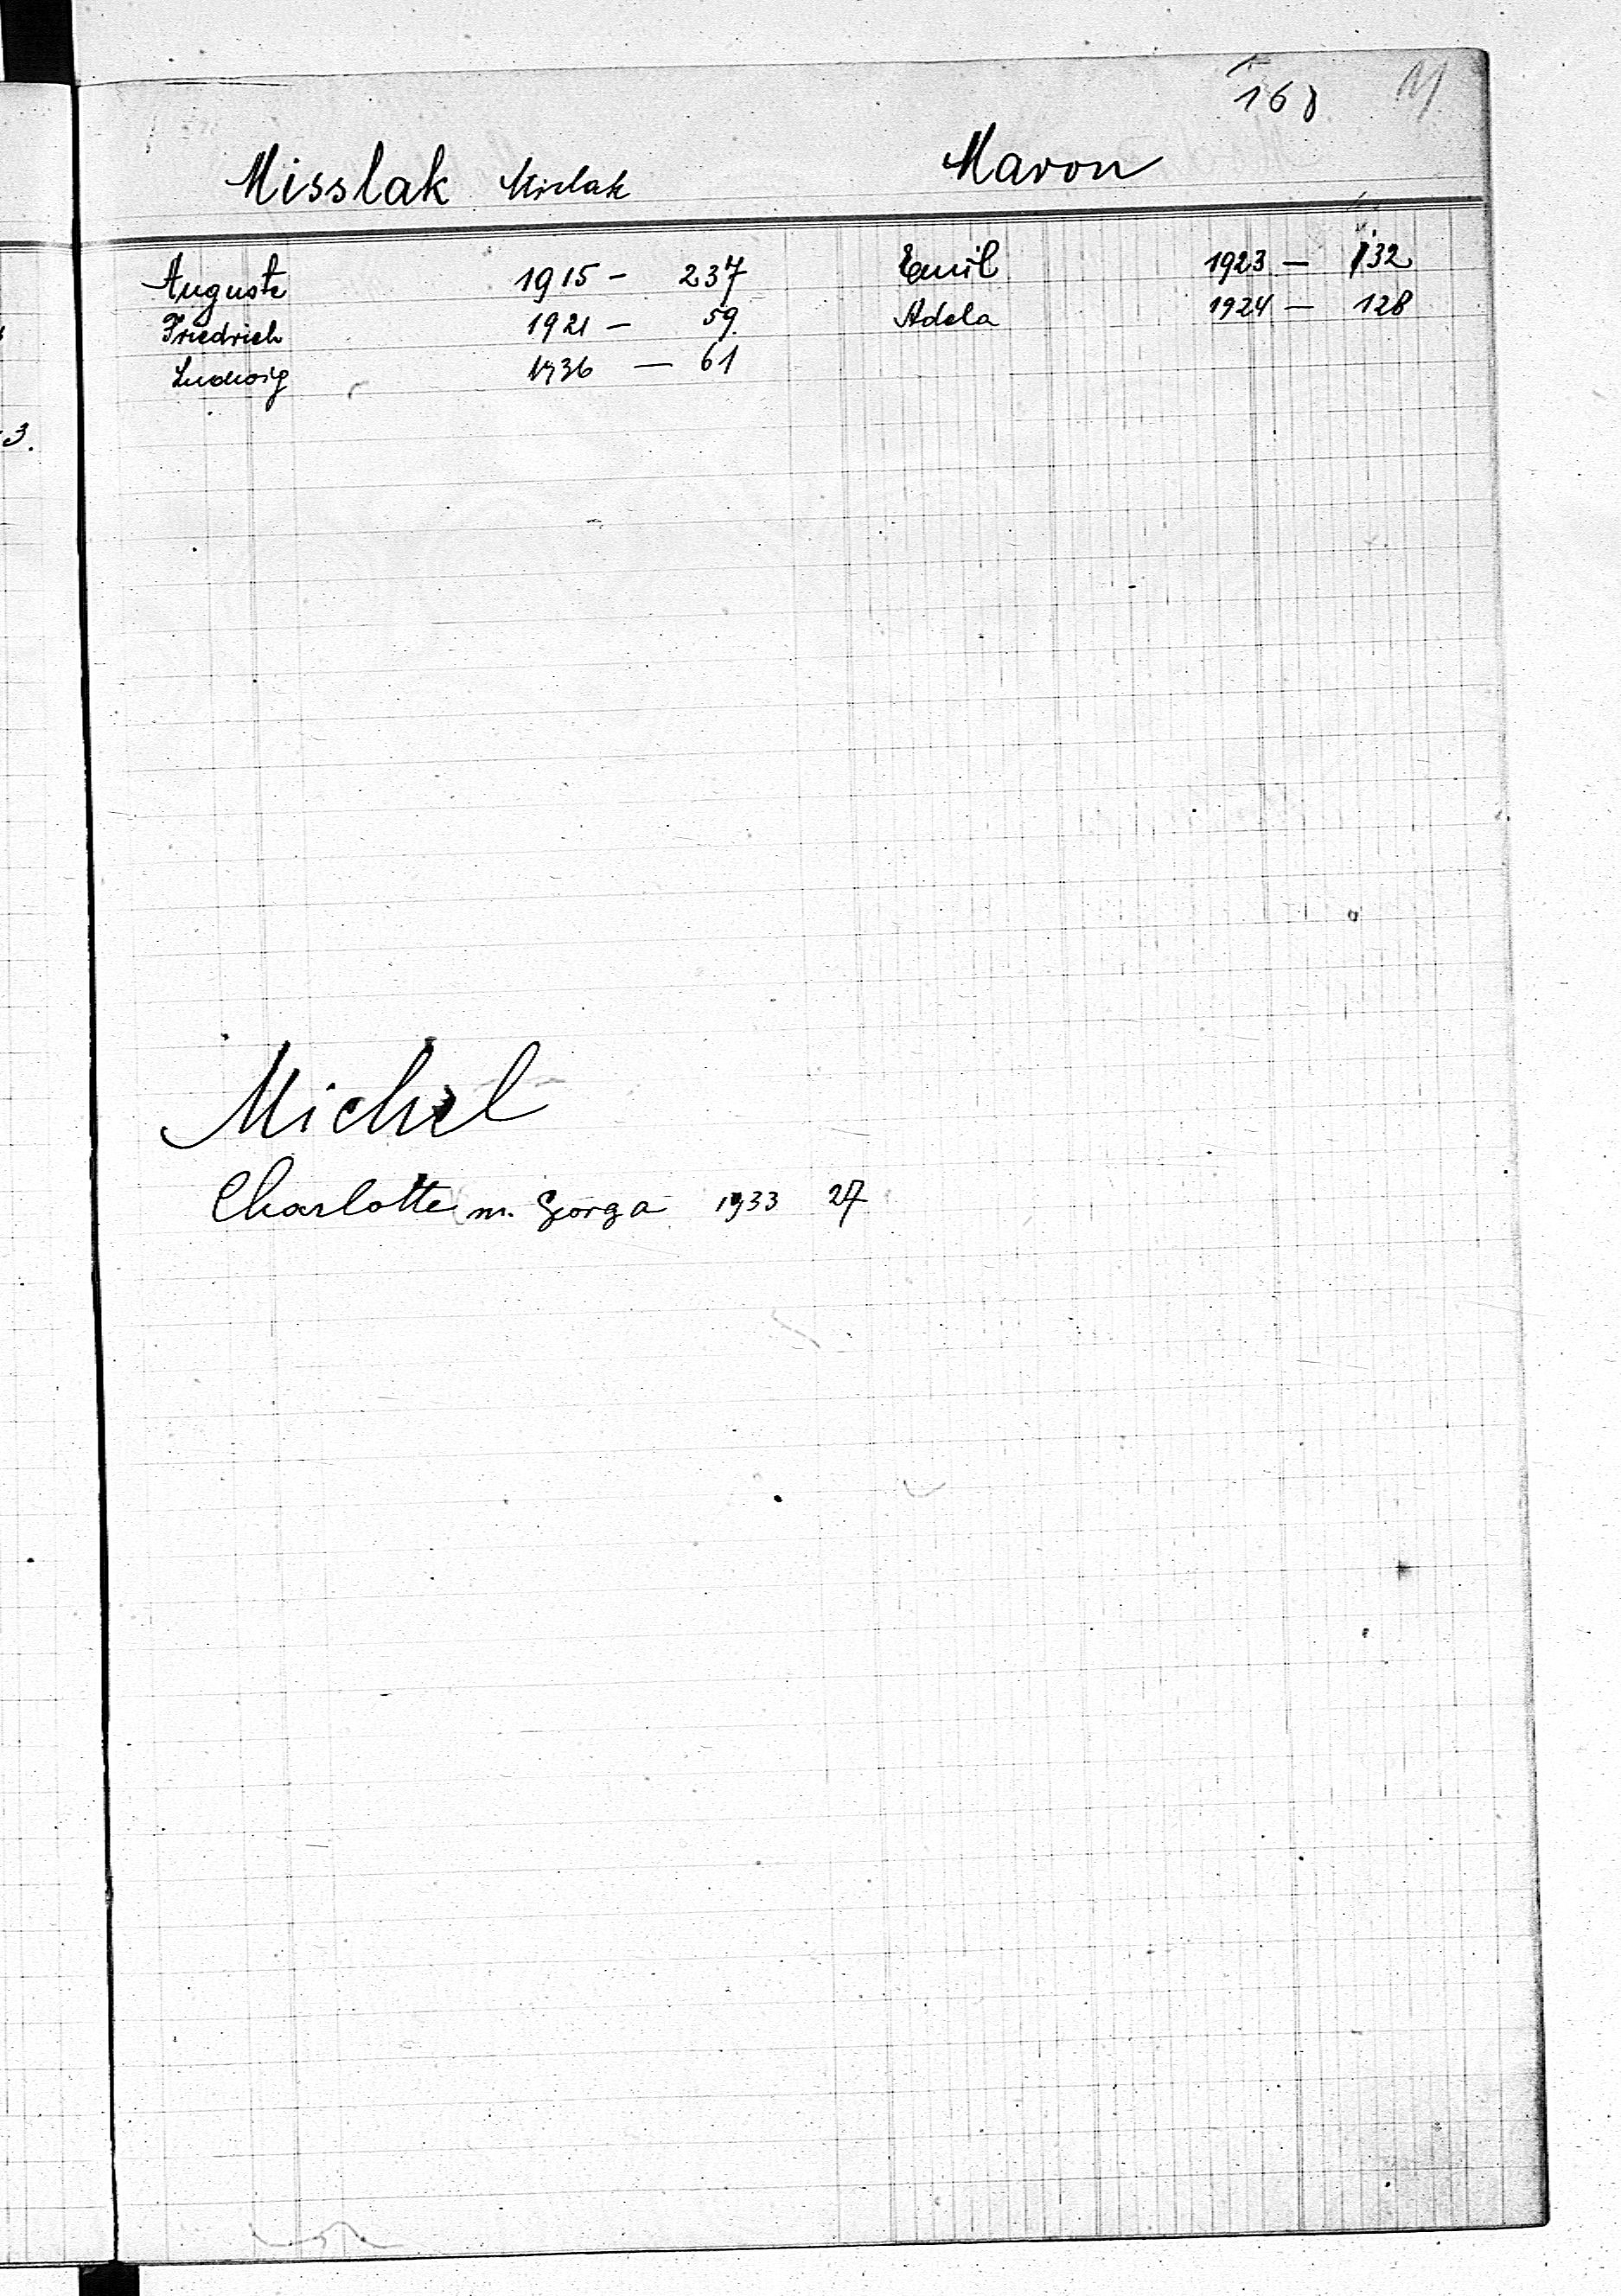 168 M
Misslak Mislak
Auguste 1915 - 237
Friedrich 1921 - 59.
Ludwig 1936 — 61
Maron
Emil 1923 — 132
Adela 1924 — 128
Michel
Charlotte m. Gorga 1933 27
3.